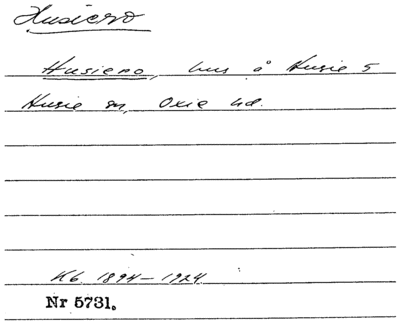 Husiero
Husiero, hus å Husie 5
Husie sn, Oxie hd.
Kb. 1894-1924
Nr 5731.